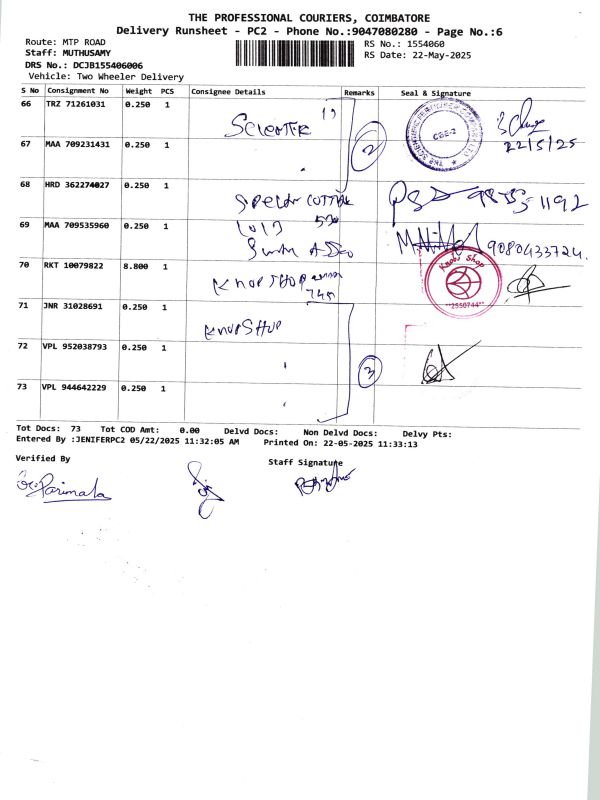 THE PROFESSIONAL COURIERS, COIMBATORE
Delivery Runsheet - PC2 - Phone No.:9047080280 - Page No.:6
Route: MTP ROAD
RS No.: 1554060
Staff: MUTHUSAMY
RS Date: 22-May-2025
DRS No.: DCJB155406006
Vehicle: Two Wheeler Delivery
S No Consignment No Weight PCS Consignee Details Remarks Seal & Signature
66 TRZ 71261031 0.250 1
22/5/25
67 MAA 709231431 0.250 1 2
CBE-2
68 HRD 362274027 0.250 1
69 MAA 709535960 0.250 1
9080433724.
70 RKT 10079822 8.800 1 KNOP SHOP
Knob Shop
**2550744**
71 JNR 31028691 0.250 1 KNOPSHOP
72 VPL 952038793 0.250 1 3
73 VPL 944642229 0.250 1
Tot Docs: 73 Tot COD Amt: 0.00 Delvd Docs: Non Delvd Docs: Delvy Pts:
Entered By :JENIFERPC2 05/22/2025 11:32:05 AM Printed On: 22-05-2025 11:33:13
Verified By Staff Signature
Parimala